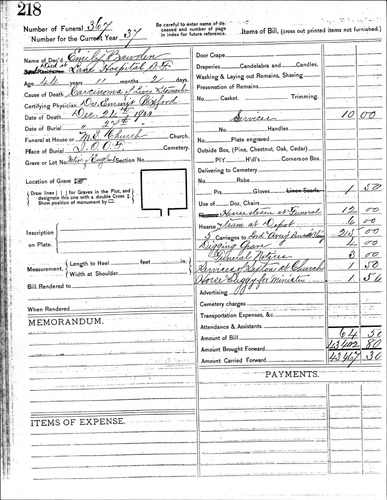 218
Number of Funeral 367
Number for the Current Year 37
Be careful to enter name of deceased and number of page in index for future reference.
Name of Dec'd Emily Bawden
Died at
Lane Hospital S.F.
Age 44 11 2 days
Cause of Death Carcinoma of Liver & Stomach
Certifying Physician Dr. Emmet Rixford
Date of Death Dec. 24th 1900
Date of Burial 27th
Funeral at House or M.E. Church Church.
Place of Burial I.O.O.F. Cemetery.
Grave or Lot No. Section No.
Location of Grave
Draw lines for Graves in the Plot, and designate this one with a double Cross
Show position of monument by
Inscription
on Plate.
Measurement. Length to Heel feet in
Width at Shoulder
Bill Rendered to
When Rendered
MEMORANDUM.
ITEMS OF EXPENSE.
Items of Bill, (cross out printed items not furnished.)
Door Crape
Draperies Candelabras and Candles.
Washing & Laying out Remains, Shaving.
Preservation of Remains
No. Casket. Trimming.
Services 10 00
No. Handles
No. Plate engraved
Outside Box, (Pine, Chestnut, Oak, Cedar)
PIY H'd'l Corners on Box.
Delivering to Cemetery
No. Robe
Prs. Gloves 1 50
Use of Doz. Chairs
Hearse team at Funeral 12 00
Hearse team at Depot 6 00
Carriages to
Digging Grave
Funeral Notices 3 00
Services of Sexton at Church 1 50
Horse & Buggy for Minister 1 50
Advertising
Cemetery charges
Transportation Expenses, &c.
Attendance & Assistants
Amount of Bill 64 50
Amount Brought Forward 43402 80
Amount Carried Forward 43467 30
PAYMENTS.